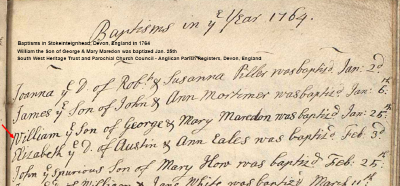 Baptisms in yͤ Year 1764.
Baptisms in Stokeinteignhead, Devon, England in 1764
William the Son of George & Mary Maredon was baptized Jan. 25th
South West Heritage Trust and Parochial Church Council - Anglican Parish Registers, Devon, England
Joanna yͤ D. of Robᵗ & Susanna Pitter was baptizd Jan: 2ᵈ
James yͤ Son of John & Ann Mortimer was baptizd Jan: 6.ᵗʰ
William yͤ Son of George & Mary Maredon was baptizd Jan: 25.ᵗʰ
Elizabeth yͤ D. of Austin & Ann Eales was baptizd Feb: 3ᵈ
John yͤ Spurious Son of Mary How was baptizd Feb: 25.ᵗʰ
of William & Jane White was baptizd March 11ᵗʰ